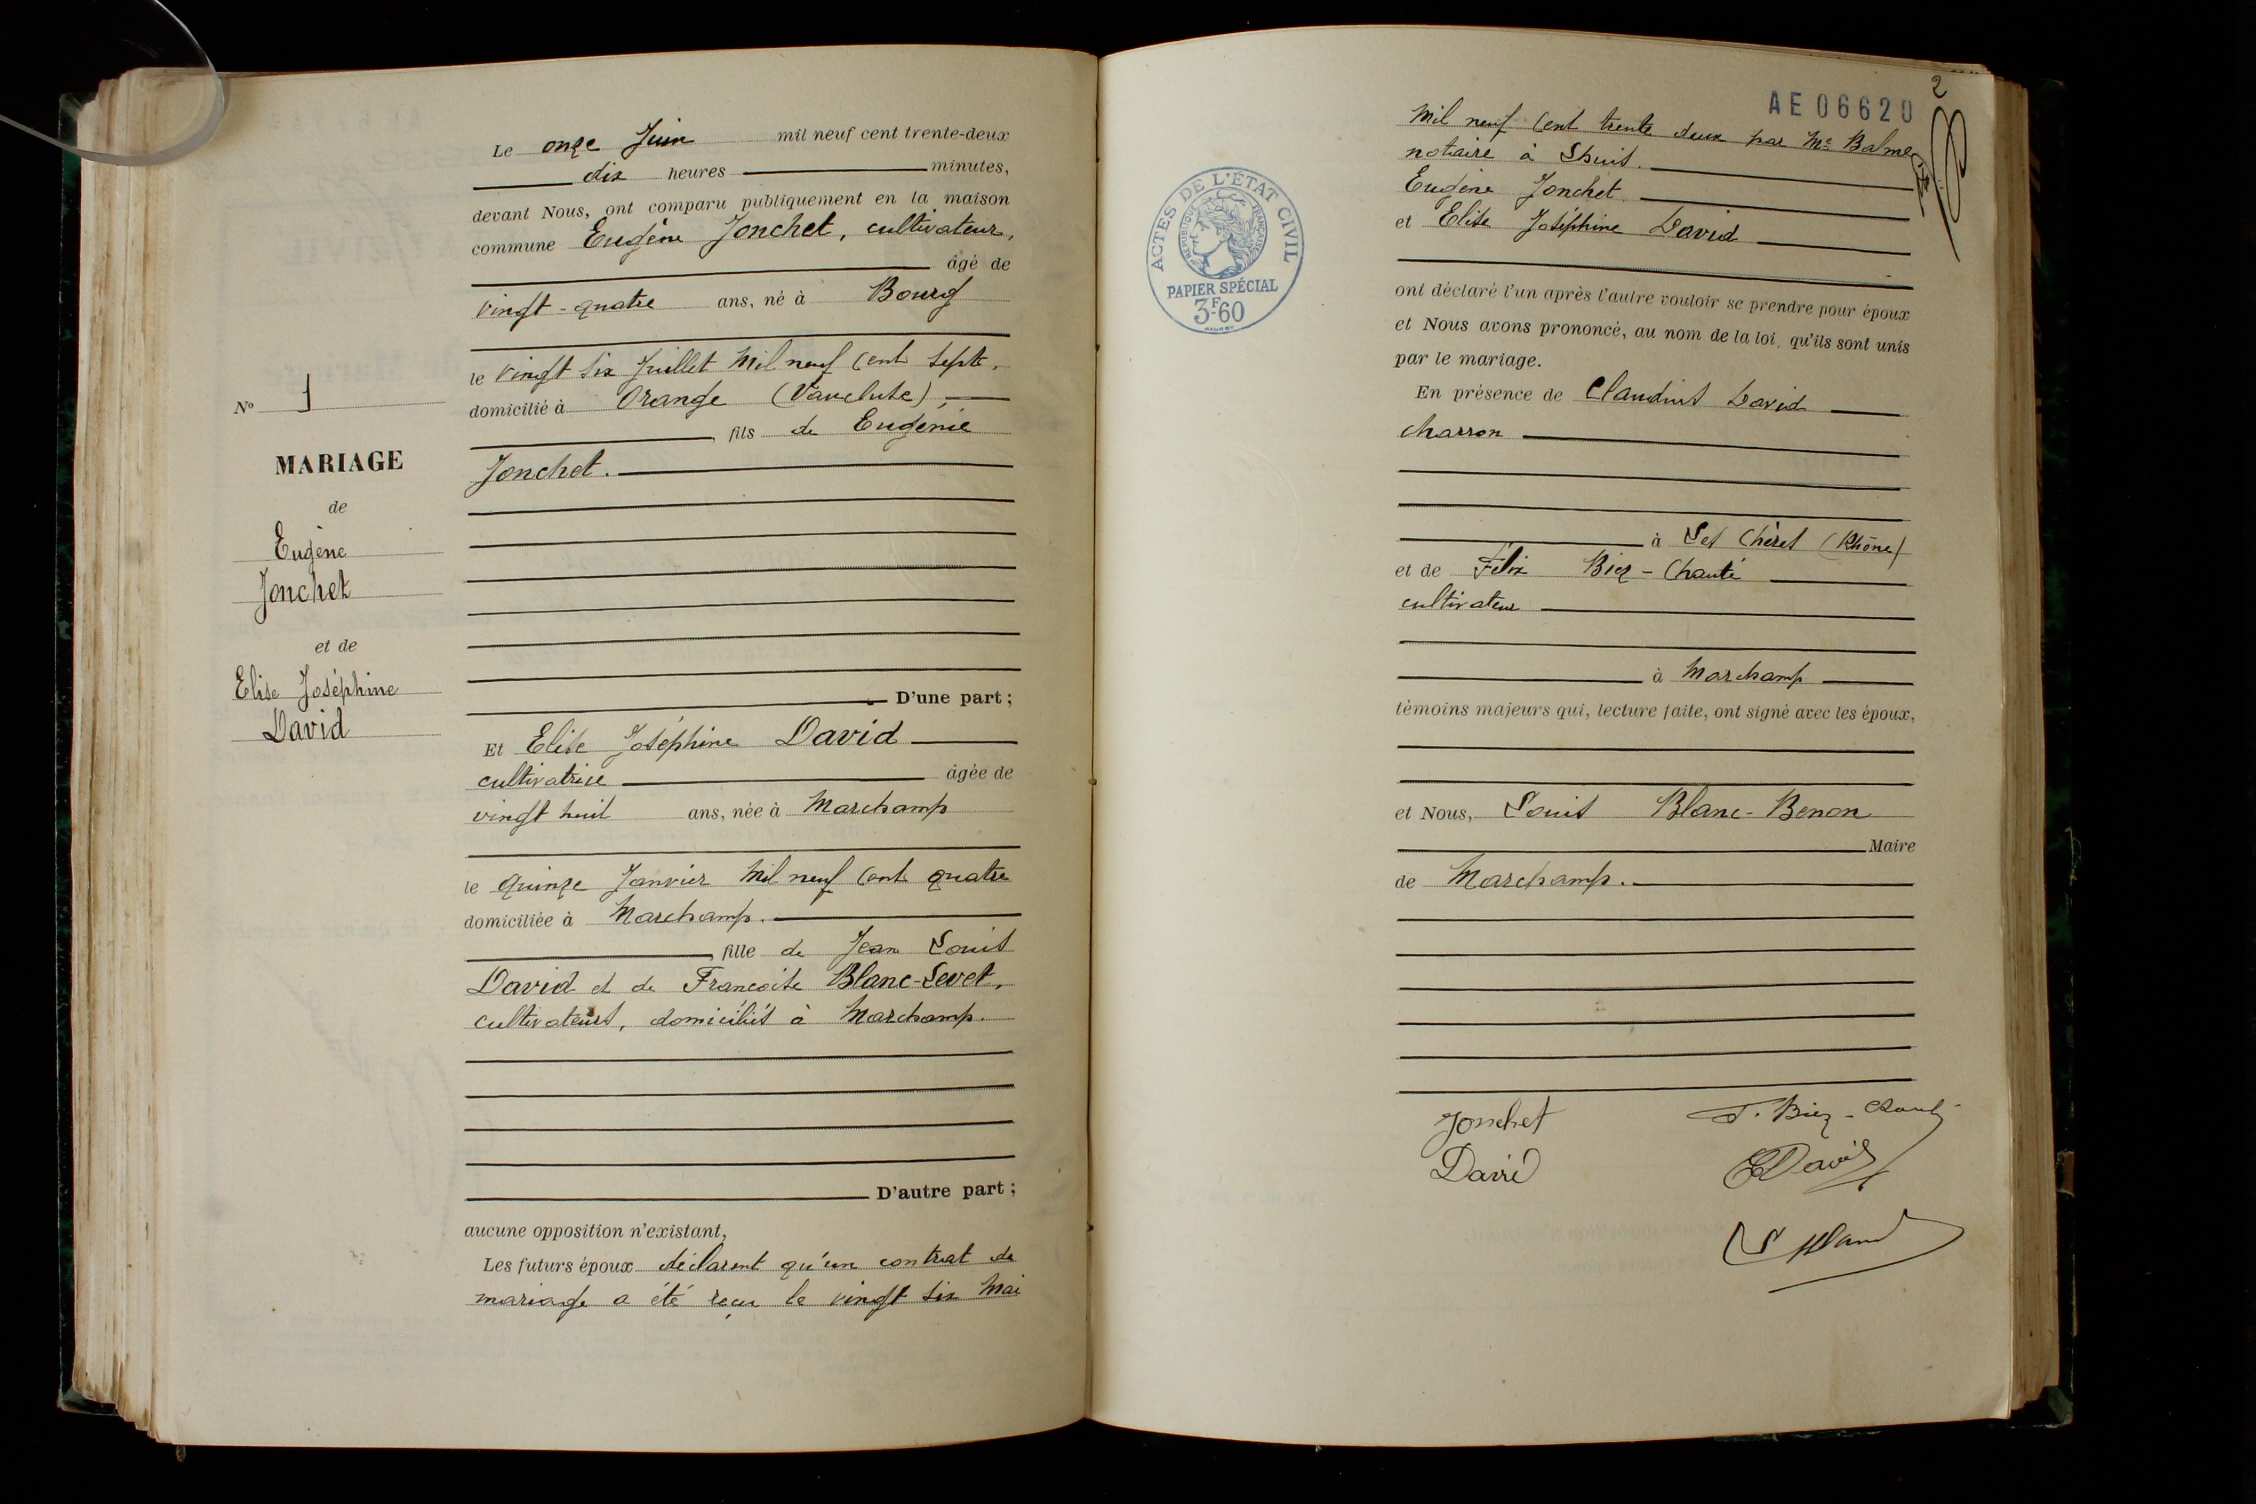 Le onze Juin mil neuf cent trente-deux
dix heures minutes,
devant Nous, ont comparu publiquement en la maison
commune Eugène Jonchet, cultivateur,
âgé de
vingt-quatre ans, né à Bourg
le vingt six Juillet mil neuf cent sept,
domicilié à Orange (Vaucluse),
fils de Eugénie
Jonchet.
D'une part ;
Et Elise Joséphine David
cultivatrice âgée de
vingt huit ans, née à Marchamp
le quinze Janvier mil neuf cent quatre
domiciliée à Marchamp.
fille de Jean Louis
David et de Francoise Blanc-Levet,
cultivateurs, domiciliés à Marchamp.
D'autre part ;
aucune opposition n'existant,
Les futurs époux déclarent qu'un contrat de
mariage a été reçu le vingt six Mai
No 1
MARIAGE
de
Eugène
Jonchet
et de
Elise Joséphine
David
2
AE 06620
mil neuf cent trente deux par Me Balme
notaire à Lhuis.
Eugène Jonchet
et Elise Joséphine David
ont déclaré l'un après l'autre vouloir se prendre pour époux
et Nous avons prononcé, au nom de la loi, qu'ils sont unis
par le mariage.
En présence de Claudius David
charron
à Les Chères (Rhône)
et de Félix Biez-Chanté
cultivateur
à Marchamp
témoins majeurs qui, lecture faite, ont signé avec les époux,
et Nous, Louis Blanc-Benon
Maire
de Marchamp.
Jonchet
F. Biez-Chanté
David
CDavid
L Blanc
ACTES DE L'ÉTAT CIVIL
RÉPUBLIQUE FRANÇAISE
PAPIER SPÉCIAL
3F60